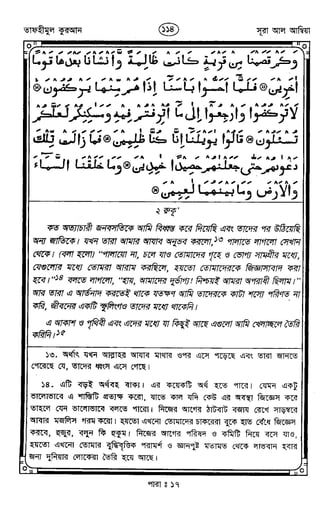 তাফহীমুল কুরআন
১১৪
সূরা আল আম্বিয়া
وَكَمْ قَصَمْنَا مِنْ قَرْيَةٍ كَانَتْ ظَالِمَةً وَّاَنْشَاْنَا بَعْدَهَا قَوْمًا
اٰخَرِيْنَ۞ فَلَمَّآ اَحَسُّوْا بَاْسَنَآ اِذَا هُمْ مِّنْهَا يَرْكُضُوْنَ۞
لَا تَرْكُضُوْا وَارْجِعُوْٓا اِلٰى مَآ اُتْرِفْتُمْ فِيْهِ وَمَسٰكِنِكُمْ لَعَلَّكُمْ
تُسْئَلُوْنَ۞ قَالُوْا يٰوَيْلَنَآ اِنَّا كُنَّا ظٰلِمِيْنَ۞ فَمَا زَالَتْ تِّلْكَ
دَعْوٰىهُمْ حَتّٰى جَعَلْنٰهُمْ حَصِيْدًا خٰمِدِيْنَ۞ وَمَا خَلَقْنَا السَّمَآءَ
وَالْاَرْضَ وَمَا بَيْنَهُمَا لٰعِبِيْنَ۞
২ রুকূ'
কত অত্যাচারী জনবসতিকে আমি বিধ্বস্ত করে দিয়েছি এবং তাদের পর উঠিয়েছি
অন্য জাতিকে। যখন তারা আমার আযাব অনুভব করলো,১৩ পালাতে লাগলো সেখান
থেকে। (বলা হলো) "পালায়ো না, চলে যাও তোমাদের গৃহে ও ভোগ্য সামগ্রীর মধ্যে,
যেগুলোর মধ্যে তোমরা আরাম করছিলে, হয়তো তোমাদেরকে জিজ্ঞাসাবাদ করা
হবে।"১৪ বলতে লাগলো, "হায়, আমাদের দুর্ভাগ্য! নিশ্চয়ই আমরা অপরাধী ছিলাম।"
আর তারা এ আর্তনাদ করতেই থাকে যতক্ষণ আমি তাদেরকে কাটা শস্যে পরিণত না
করি, জীবনের একটি স্ফুলিংগও তাদের মধ্যে থাকেনি।
এ আকাশ ও পৃথিবী এবং এদের মধ্যে যা কিছুই আছে এগুলো আমি খেলাচ্ছলে তৈরি
করিনি।১৫
১৩. অর্থাৎ যখন আল্লাহর আযাব মাথার ওপর এসে পড়েছে এবং তারা জানতে
পেরেছে যে, তাদের ধ্বংস এসে গেছে।
১৪. এটি বড়ই অর্থবহ বাক্য। এর কয়েকটি অর্থ হতে পারে। যেমন একটু
ভালোভাবে এ শাস্তিটি প্রত্যক্ষ করো, যাতে কাল যদি কেউ এর অবস্থা জিজ্ঞেস করে
তাহলে যেন ভালোভাবে বলতে পারো। নিজের আগের ঠাটবাট বজায় রেখে সাড়ম্বরে
আবার মজলিস গরম করো। হয়তো এখনো তোমাদের চাকরেরা বুকে হাত বেঁধে জিজ্ঞেস
করবে, হুজুর, বলুন কি হুকুম। নিজের আগের পরিষদ ও কমিটি নিয়ে বসে যাও,
হয়তো এখনো তোমার বুদ্ধিবৃত্তিক পরামর্শ ও জ্ঞানপুষ্ট মতামত থেকে লাভবান হবার
জন্য দুনিয়ার লোকেরা তৈরি হয়ে আছে।
পারা ঃ ১৭